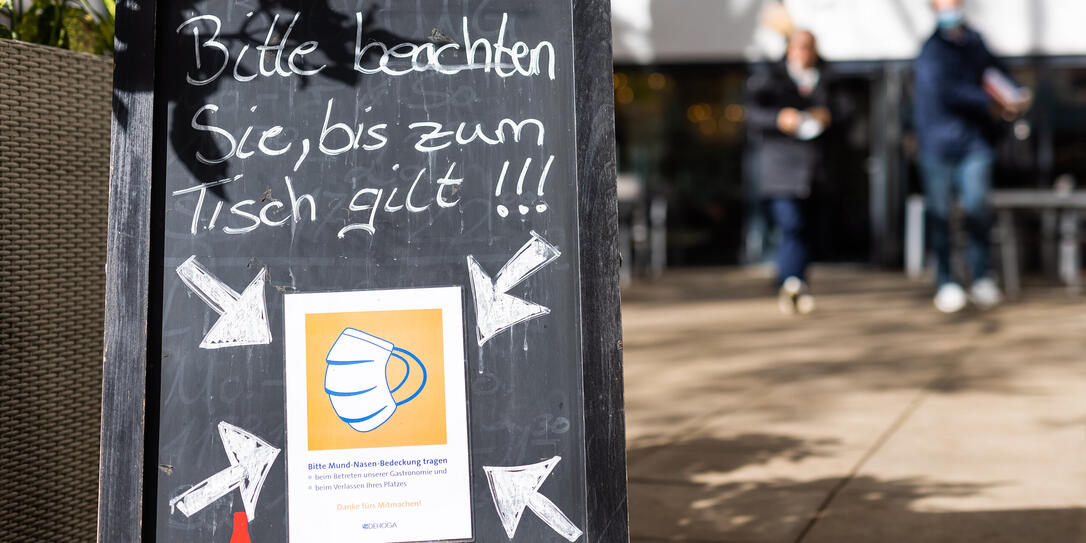 Bitte beachten
Sie, bis zum
Tisch gilt !!!
Bitte Mund-Nasen-Bedeckung tragen
beim Betreten unserer Gastronomie und
beim Verlassen Ihres Platzes
Danke fürs Mitmachen!
DEHOGA